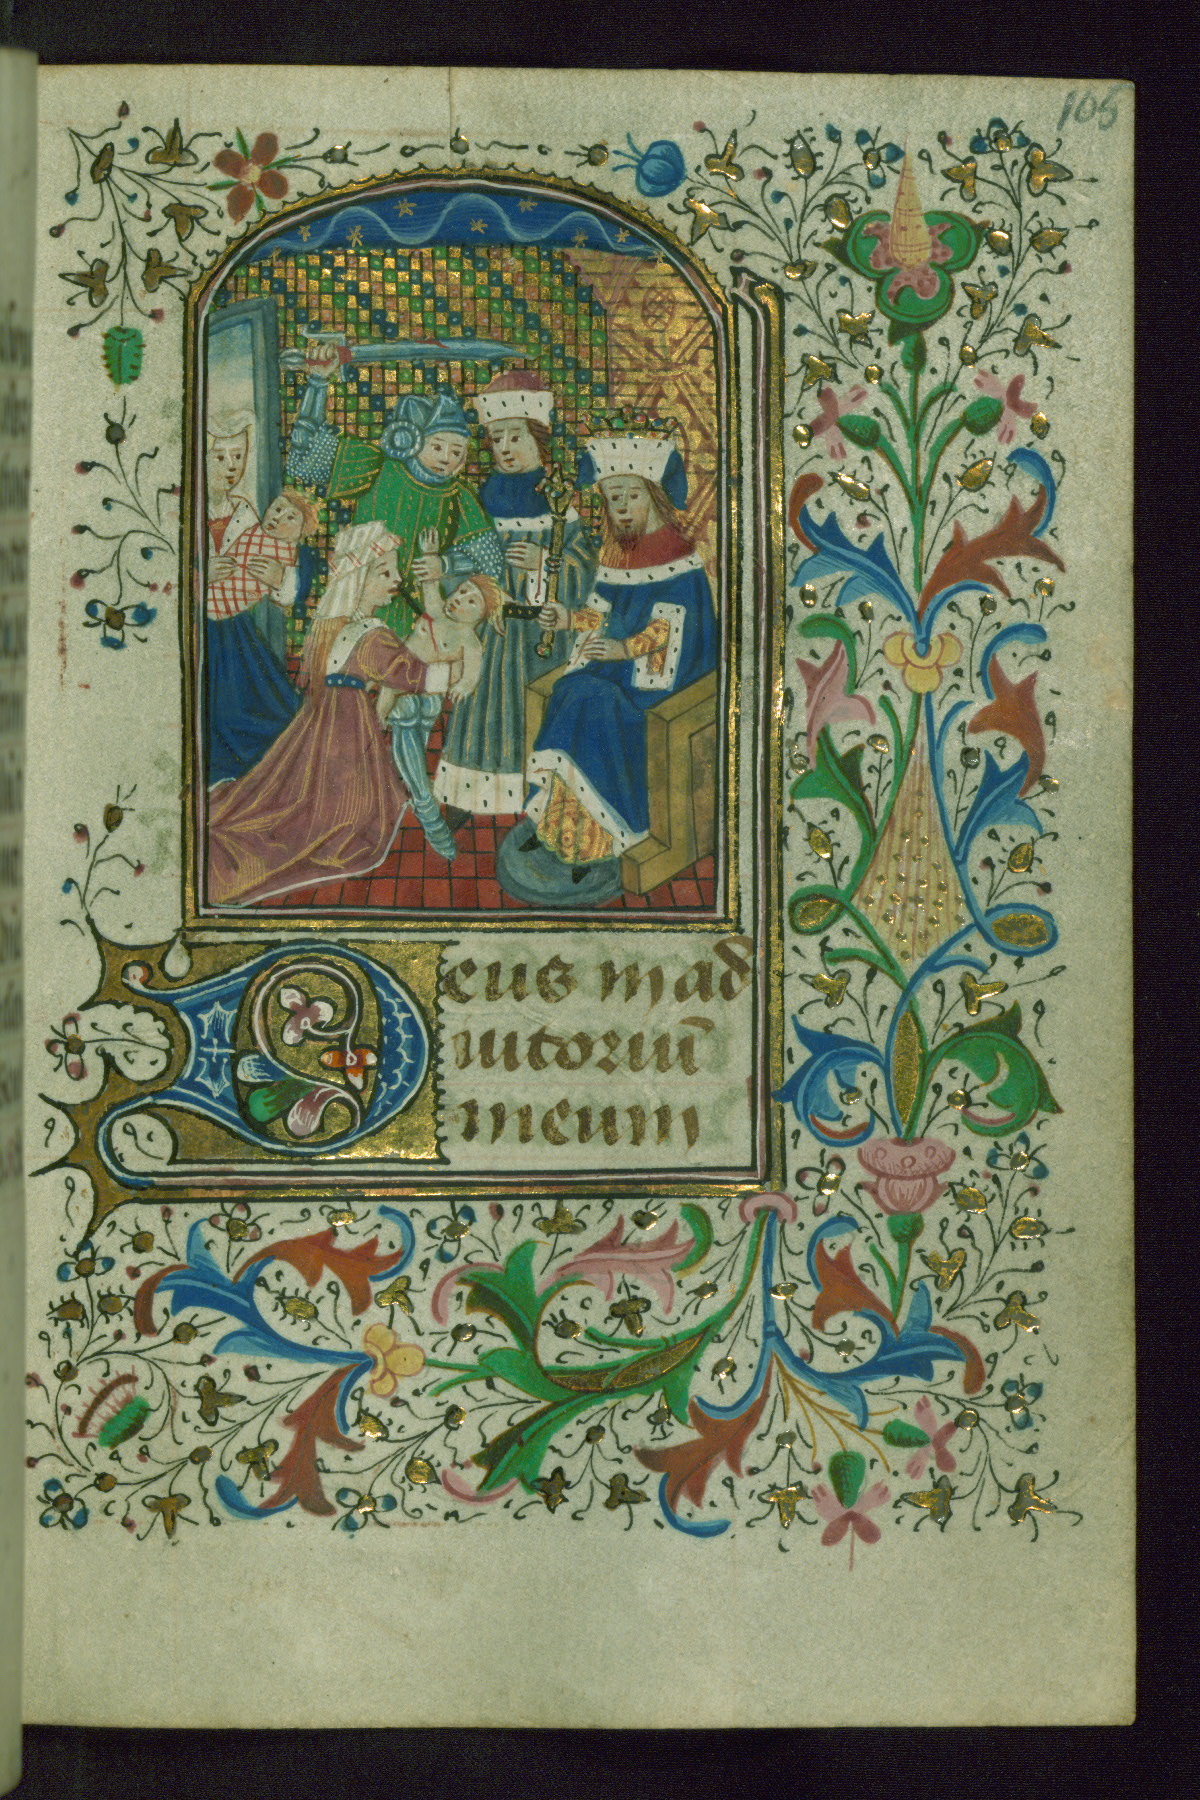 105
Deus in ad
iutoriū
meum